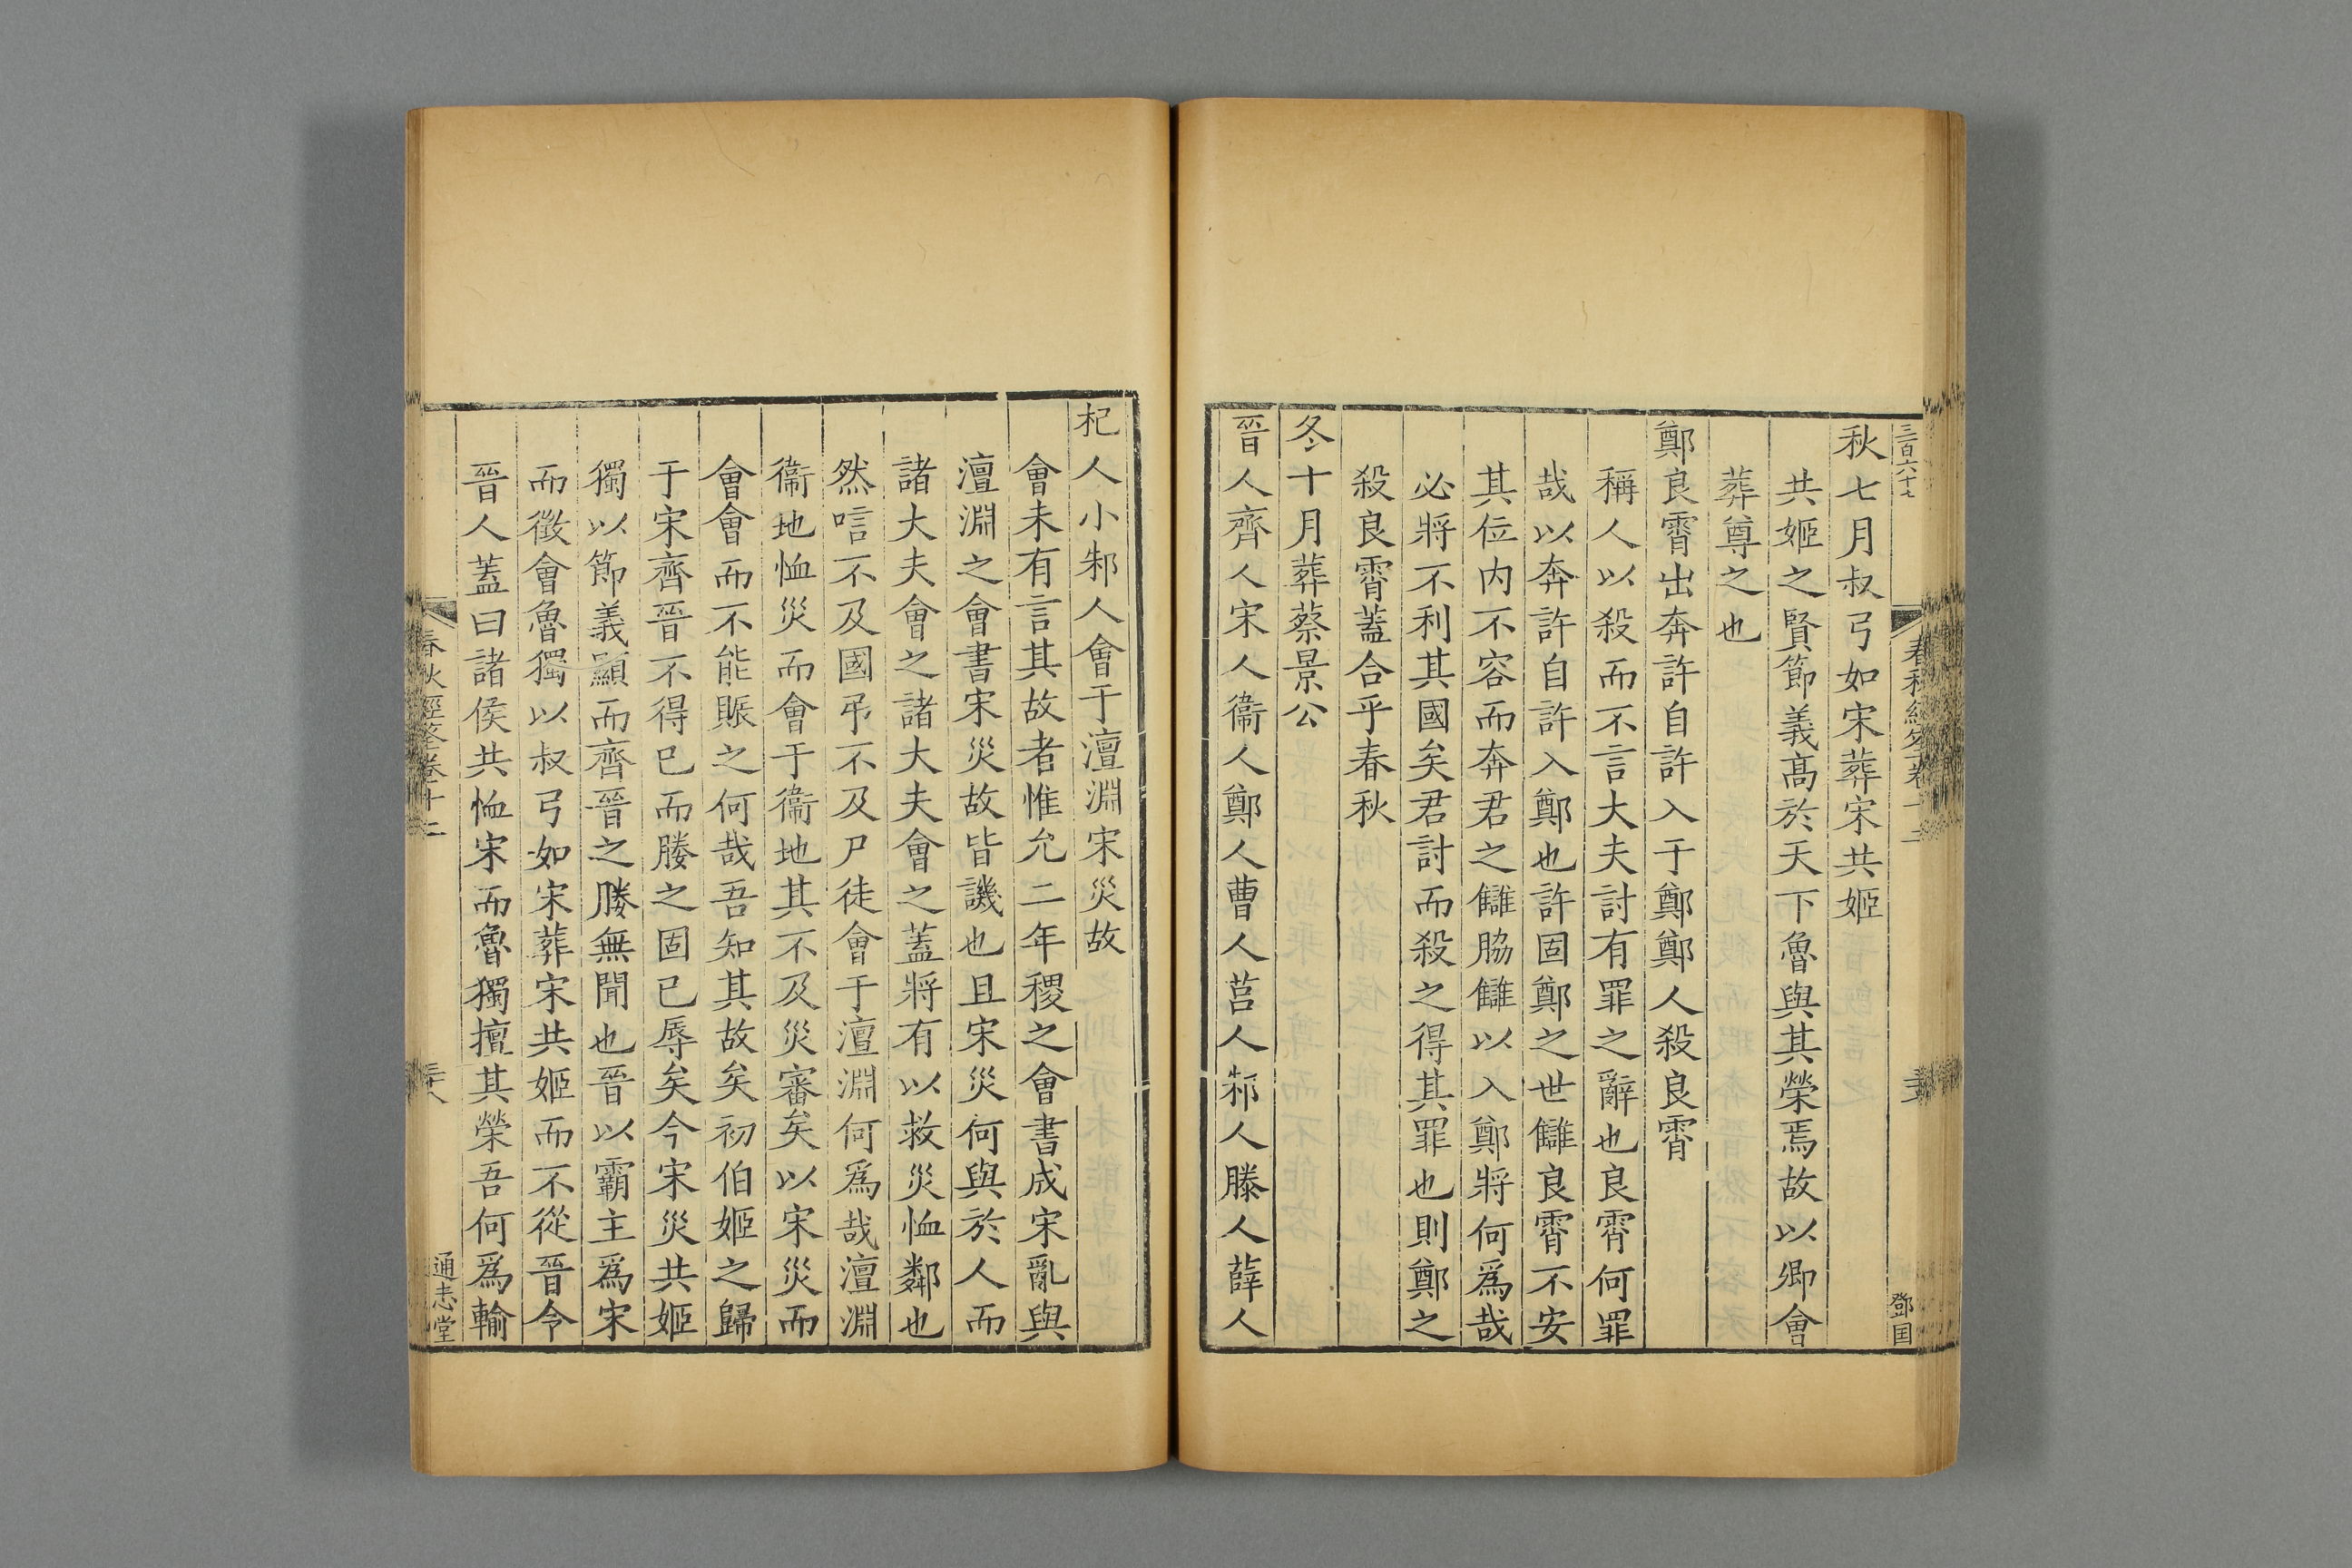 三百六十七
秋七月叔弓如宋葬宋共姬
共姬之賢節義髙於天下魯與其榮焉故以卿會
葬尊之也
鄭良霄出奔許自許入于鄭鄭人殺良霄
稱人以殺而不言大夫討有罪之辭也良霄何罪
哉以奔許自許入鄭也許固鄭之世讎良霄不安
其位内不容而奔君之讎脇讎以入鄭將何爲哉
必將不利其國矣君討而殺之得其罪也則鄭之
殺良霄蓋合乎春秋
冬十月葬蔡景公
晉人齊人宋人衞人鄭人曹人莒人邾人滕人薛人
杞人小邾人會于澶淵宋災故
會未有言其故者惟允二年稷之會書成宋亂與
澶淵之會書宋災故皆譏也且宋災何與於人而
諸大夫會之諸大夫會之蓋將有以救災恤鄰也
然唁不及國弔不及尸徒會于澶淵何爲哉澶淵
衞地恤災而會于衞地其不及災審矣以宋災而
會會而不能賑之何哉吾知其故矣初伯姬之歸
于宋齊晉不得已而媵之固已辱矣今宋災共姬
獨以節義顯而齊晉之媵無聞也晉以霸主爲宋
而徵會魯獨以叔弓如宋葬宋共姬而不從晉令
晉人蓋曰諸侯共恤宋而魯獨擅其榮吾何爲輸
春秋經筌卷十二
通志堂